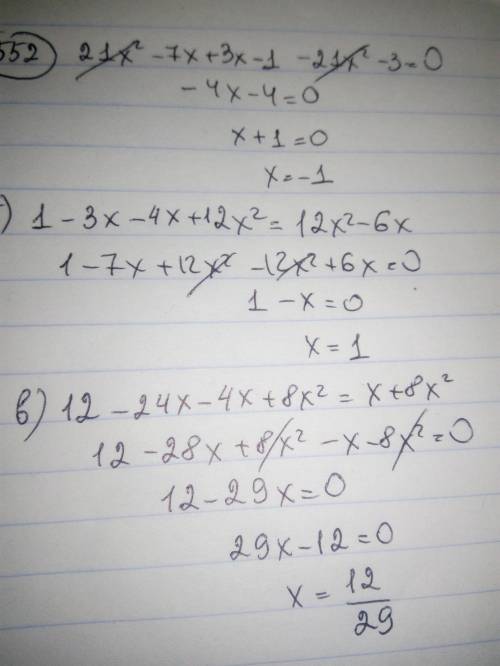 552 21x² - 7x + 3x - 1 - 21x² - 3 = 0
- 4x - 4 = 0
x + 1 = 0
x = - 1
) 1 - 3x - 4x + 12x² = 12x² - 6x
1 - 7x + 12x² - 12x² + 6x = 0
1 - x = 0
x = 1
в) 12 - 24x - 4x + 8x² = x + 8x²
12 - 28x + 8x² - x - 8x² = 0
12 - 29x = 0
29x - 12 = 0
x = 12/29